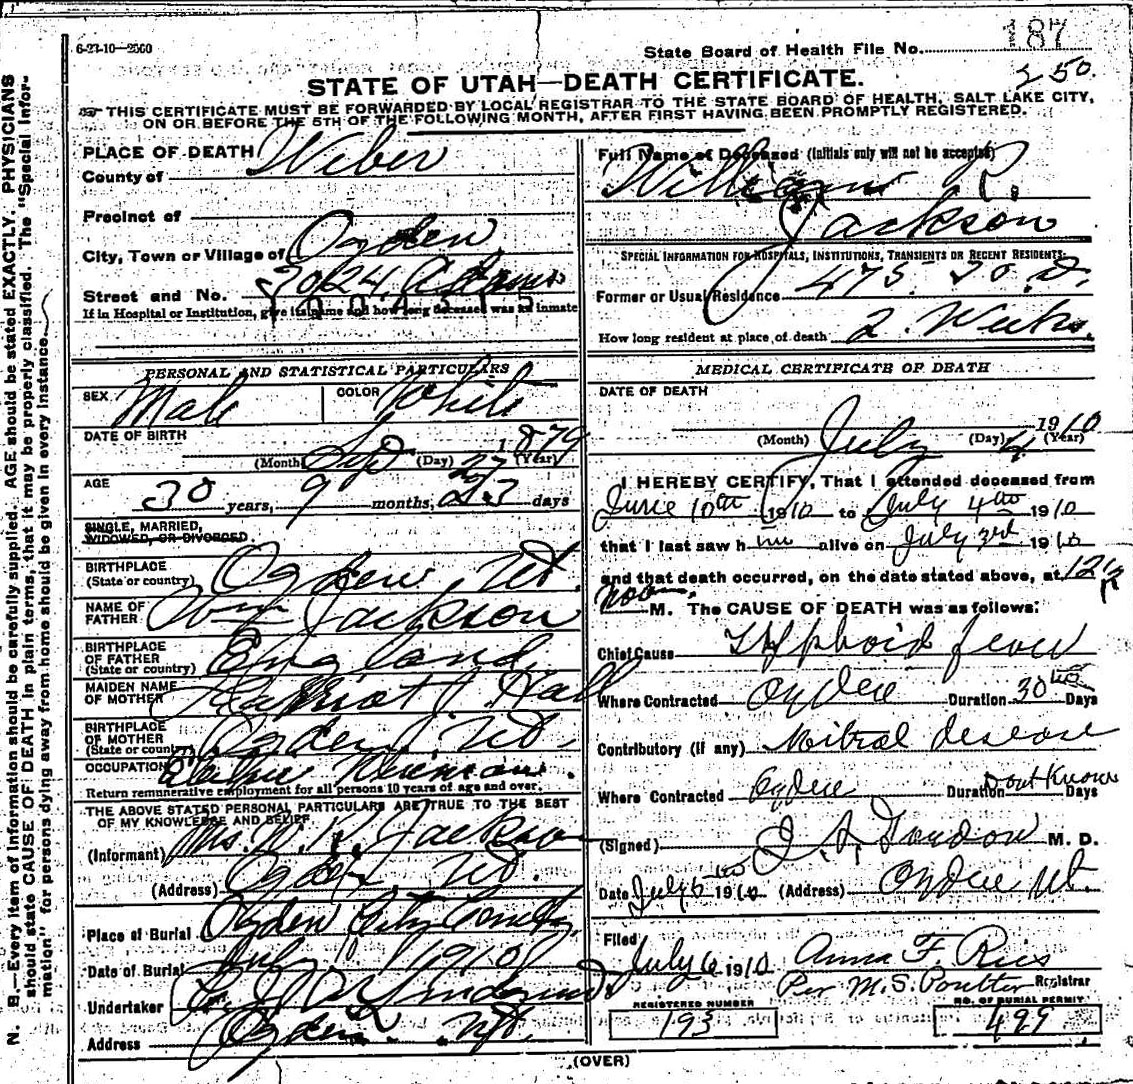 6-23-10—2500
State Board of Health File No. 187
250.
STATE OF UTAH—DEATH CERTIFICATE.
THIS CERTIFICATE MUST BE FORWARDED BY LOCAL REGISTRAR TO THE STATE BOARD OF HEALTH, SALT LAKE CITY,
ON OR BEFORE THE 5TH OF THE FOLLOWING MONTH, AFTER FIRST HAVING BEEN PROMPTLY REGISTERED.
N. B.—Every item of information should be carefully supplied. AGE should be stated EXACTLY. PHYSICIANS
should state CAUSE OF DEATH in plain terms, that it may be properly classified. The "Special Infor-
mation" for persons dying away from home should be given in every instance.
PLACE OF DEATH
County of Weber
Precinct of
City, Town or Village of Ogden
Street and No. Adams
If in Hospital or Institution, give its name and how long deceased was an inmate
PERSONAL AND STATISTICAL PARTICULARS
SEX Male COLOR White
DATE OF BIRTH
(Month) Sep (Day) (Year) 1879
AGE
30 years, 9 months, days
SINGLE, MARRIED,
WIDOWED, OR DIVORCED.
BIRTHPLACE
(State or country) Ogden, Ut.
NAME OF
FATHER Wm Jackson
BIRTHPLACE
OF FATHER
(State or country) England
MAIDEN NAME
OF MOTHER Harriot J. Hall
BIRTHPLACE
OF MOTHER
(State or country) Ogden, Ut.
OCCUPATION
Return remunerative employment for all persons 10 years of age and over.
THE ABOVE STATED PERSONAL PARTICULARS ARE TRUE TO THE BEST
OF MY KNOWLEDGE AND BELIEF
(Informant) Mrs. W. R. Jackson
(Address) Ogden Ut.
Place of Burial Ogden City
Date of Burial July 1910
Undertaker
Address Ogden Ut.
Full Name of Deceased (Initials only will not be accepted)
William R.
Jackson
SPECIAL INFORMATION FOR HOSPITALS, INSTITUTIONS, TRANSIENTS OR RECENT RESIDENTS:
Former or Usual Residence 475.
How long resident at place of death 2. Weeks.
MEDICAL CERTIFICATE OF DEATH
DATE OF DEATH
(Month) July (Day) 4 1910 (Year)
I HEREBY CERTIFY, That I attended deceased from
June 10th 1910 to July 4th 1910
that I last saw him alive on July 3rd 1910
and that death occurred, on the date stated above, at 12
Noon M. The CAUSE OF DEATH was as follows:
Chief Cause Typhoid fever
Where Contracted Ogden Duration 30 Days
Contributory (if any) Mitral disease
Where Contracted Ogden Duration Dont Know Days
(Signed) M. D.
Date July 1910 (Address) Ogden Ut.
Filed
July 6 1910 Anna F. Ries
Per M. S. Poulter Registrar
REGISTERED NUMBER
193
NO. OF BURIAL PERMIT
499
(OVER)